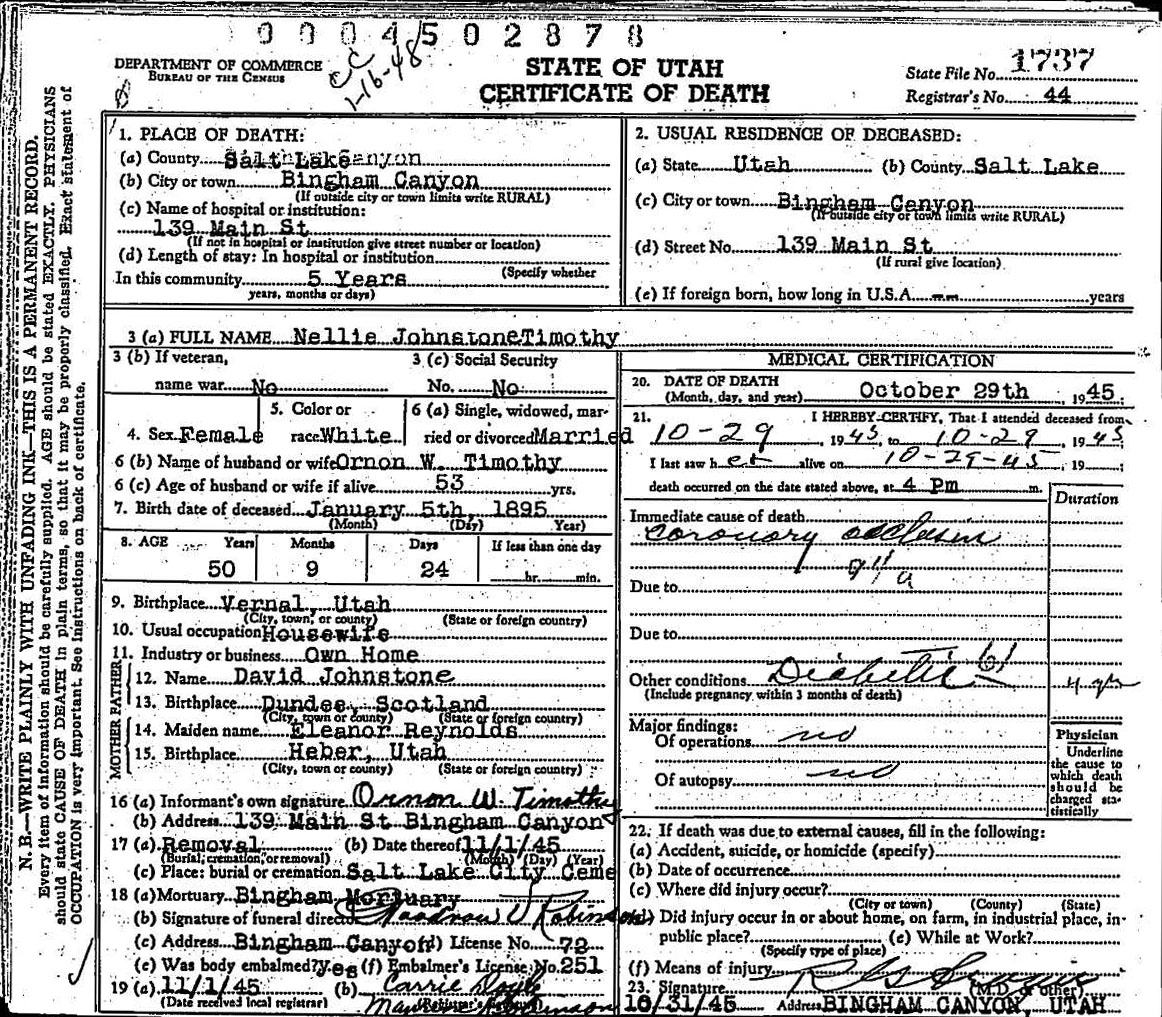 0004502878
DEPARTMENT OF COMMERCE
BUREAU OF THE CENSUS
CC
1-16-48
STATE OF UTAH
CERTIFICATE OF DEATH
State File No. 1737
Registrar's No. 44
N.B.—WRITE PLAINLY WITH UNFADING INK—THIS IS A PERMANENT RECORD.
Every item of information should be carefully supplied. AGE should be stated EXACTLY. PHYSICIANS
should state CAUSE OF DEATH in plain terms, so that it may be properly classified. Exact statement of
OCCUPATION is very important. See instructions on back of certificate.
1. PLACE OF DEATH:
(a) County Salt Lake
(b) City or town Bingham Canyon
(If outside city or town limits write RURAL)
(c) Name of hospital or institution:
139 Main St
(If not in hospital or institution give street number or location)
(d) Length of stay: In hospital or institution
(Specify whether
In this community 5 Years
years, months or days)
2. USUAL RESIDENCE OF DECEASED:
(a) State Utah (b) County Salt Lake
(c) City or town Bingham Canyon
(If outside city or town limits write RURAL)
(d) Street No. 139 Main St
(If rural give location)
(e) If foreign born, how long in U.S.A. -- years
3 (a) FULL NAME Nellie Johnstone Timothy
3 (b) If veteran,
name war No
3 (c) Social Security
No. No
4. Sex Female
5. Color or
race White
6 (a) Single, widowed, mar-
ried or divorced Married
6 (b) Name of husband or wife Ornon W. Timothy
6 (c) Age of husband or wife if alive 53 yrs.
7. Birth date of deceased January 5th, 1895
(Month) (Day) Year)
8. AGE Years Months Days If less than one day
50 9 24 hr. min.
9. Birthplace Vernal, Utah
(City, town, or county) (State or foreign country)
10. Usual occupation Housewife
11. Industry or business Own Home
FATHER
12. Name David Johnstone
13. Birthplace Dundee, Scotland
(City, town or county) (State or foreign country)
MOTHER
14. Maiden name Eleanor Reynolds
15. Birthplace Heber, Utah
(City, town or county) (State or foreign country)
16 (a) Informant's own signature Ornon W. Timothy
(b) Address 139 Main St Bingham Canyon
17 (a) Removal (b) Date thereof 11/1/45
(Burial, cremation, or removal) (Month) (Day) (Year)
(c) Place: burial or cremation Salt Lake City Ceme
18 (a) Mortuary Bingham Mortuary
(b) Signature of funeral director Woodrow V Robinson
(c) Address Bingham Canyon (d) License No. 72
(e) Was body embalmed? yes (f) Embalmer's License No. 251
19 (a) 11/1/45 (b) Carrie Doyle
(Date received local registrar) (Registrar's signature)
MEDICAL CERTIFICATION
20. DATE OF DEATH
(Month, day, and year) October 29th, 1945
21. I HEREBY CERTIFY, That I attended deceased from
10-29, 1945, to 10-29, 1945
I last saw her alive on 10-29-45, 19 ;
death occurred on the date stated above, at 4 Pm m.
Duration
Immediate cause of death
Coronary occlusion
94a
Due to
Due to
Other conditions Diabetic 61
(Include pregnancy within 3 months of death)
Major findings:
Of operations no
Of autopsy no
Physician
Underline
the cause to
which death
should be
charged sta-
tistically
22. If death was due to external causes, fill in the following:
(a) Accident, suicide, or homicide (specify)
(b) Date of occurrence
(c) Where did injury occur?
(City or town) (County) (State)
(d) Did injury occur in or about home, on farm, in industrial place, in
public place? (e) While at Work?
(Specify type of place)
(f) Means of injury
23. Signature
(M.D. or other)
10/31/45 Address BINGHAM CANYON, UTAH